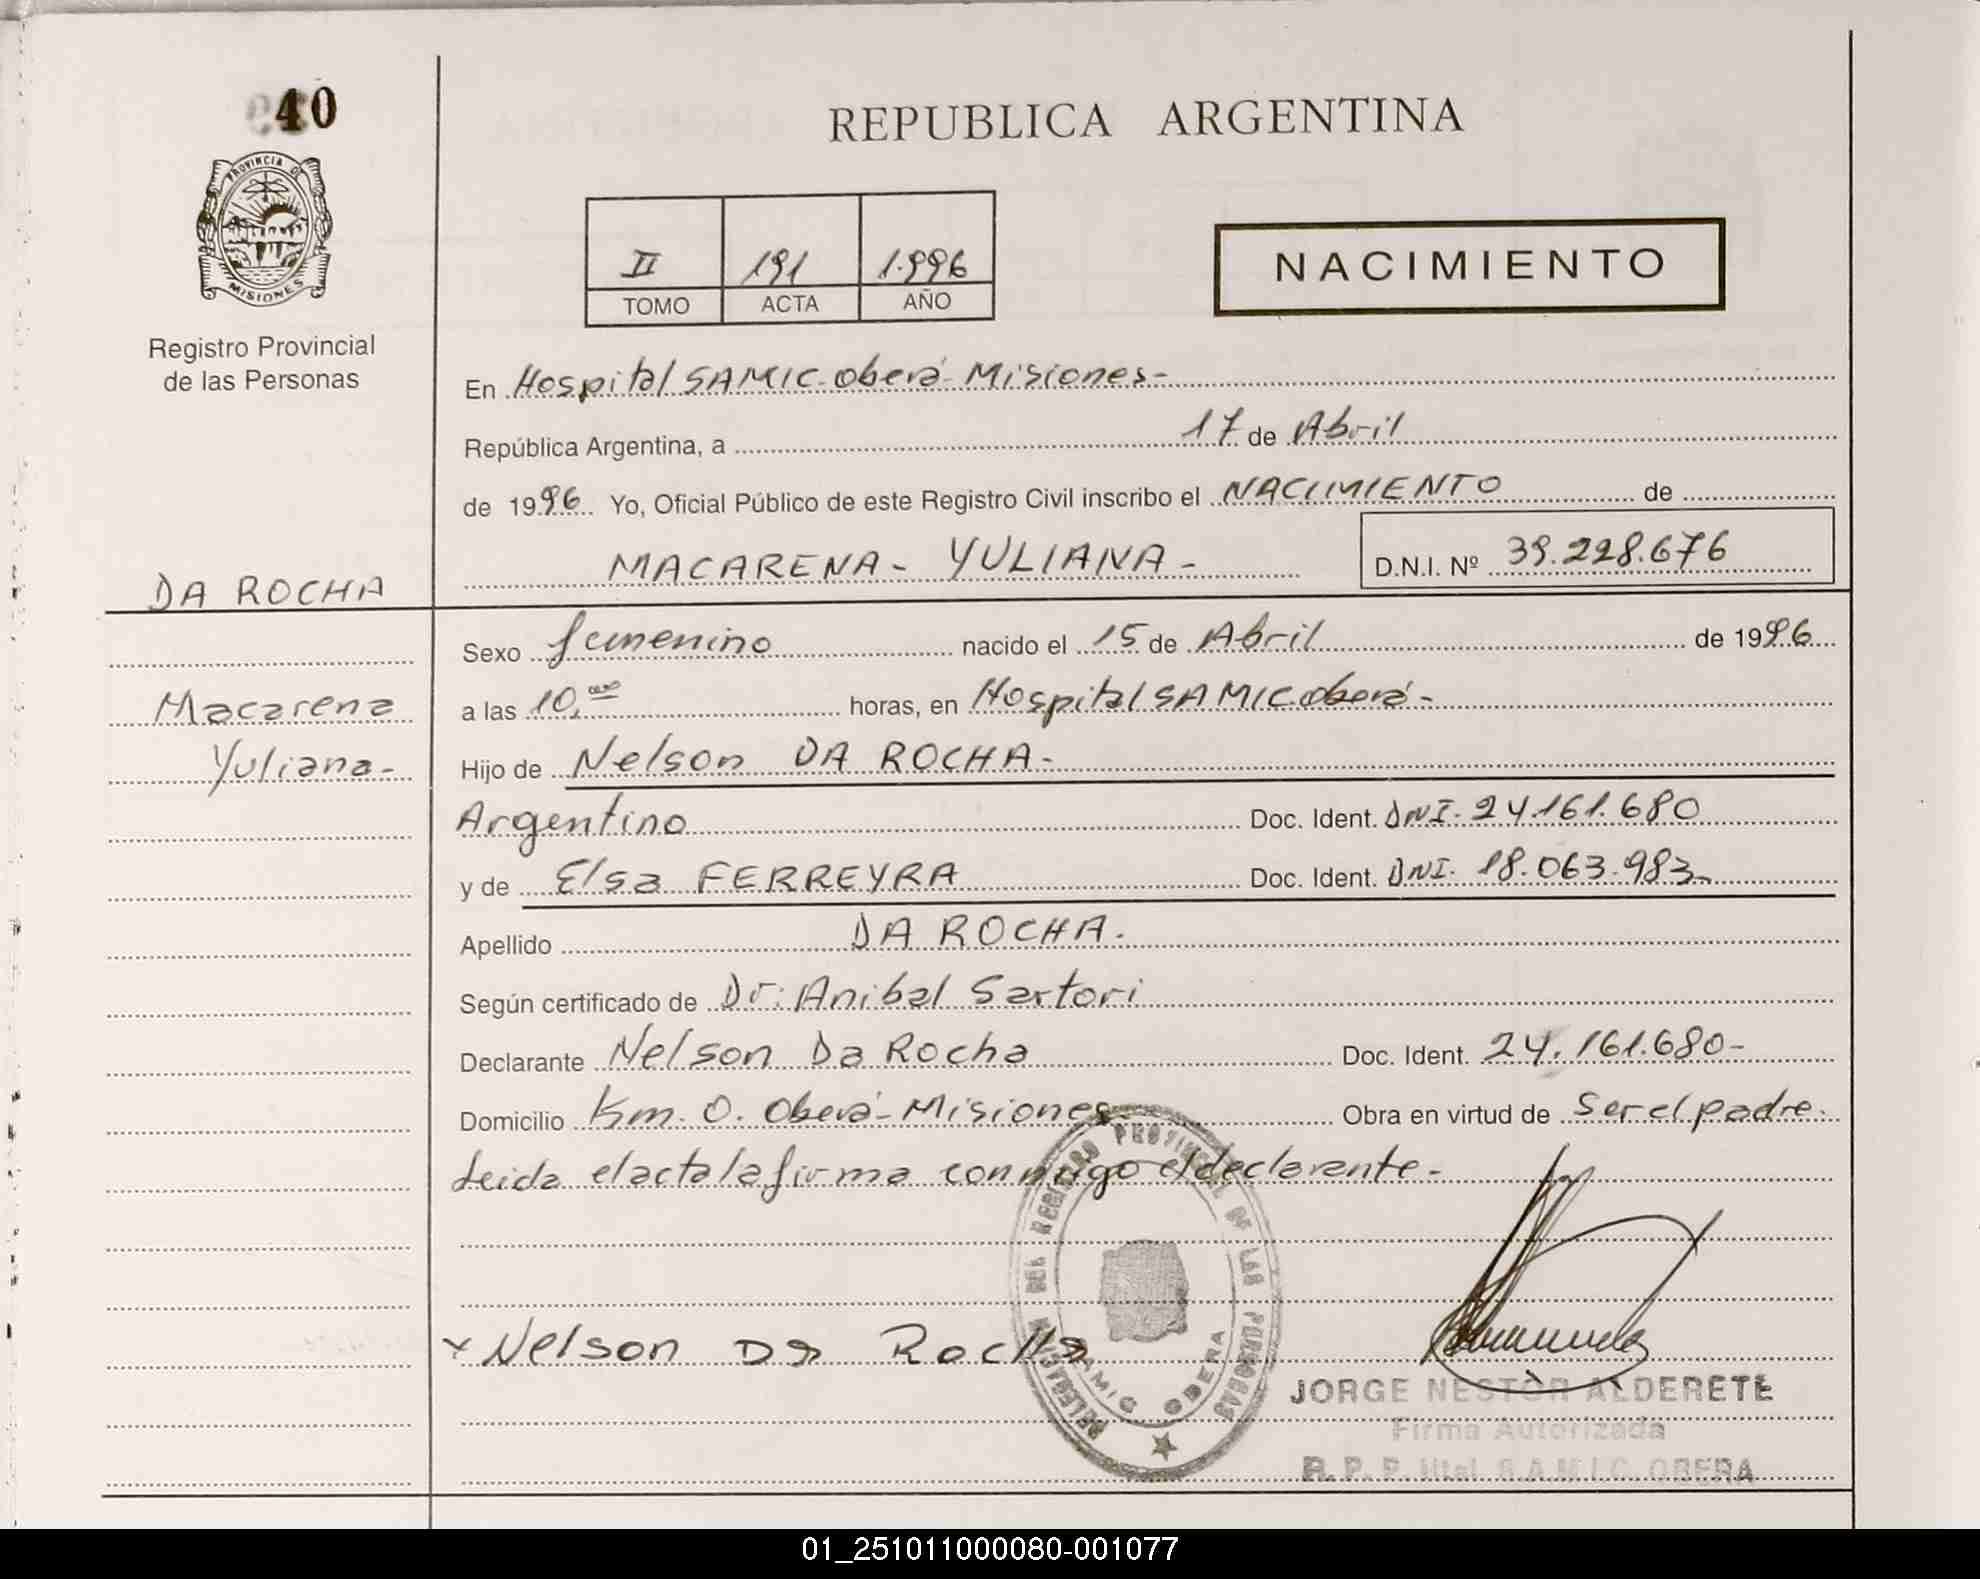 40
PROVINCIA DE
MISIONES
Registro Provincial
de las Personas
REPUBLICA ARGENTINA
II 191 1.996
TOMO ACTA AÑO
NACIMIENTO
En Hospital SAMIC - Oberá - Misiones -
República Argentina, a 17 de Abril
de 1996. Yo, Oficial Público de este Registro Civil inscribo el NACIMIENTO de
MACARENA - YULIANA - D.N.I. Nº 39.228.676
DA ROCHA
Macarena
Yuliana -
Sexo femenino nacido el 15 de Abril de 1996
a las 10, horas, en Hospital SAMIC Oberá -
Hijo de Nelson DA ROCHA -
Argentino Doc. Ident. DNI. 24.161.680
y de Elsa FERREYRA Doc. Ident. DNI. 18.063.983 -
Apellido DA ROCHA.
Según certificado de Dr. Anibal Sartori
Declarante Nelson Da Rocha Doc. Ident. 24.161.680 -
Domicilio Km. 0. Oberá - Misiones - Obra en virtud de Ser el padre.
Leida el acta la firma conmigo el declarante -
x Nelson Da Rocha
DELEGACION DEL REGISTRO PROVINCIAL DE LAS PERSONAS
SAMIC OBERA
JORGE NESTOR ALDERETE
Firma Autorizada
R. P. P. Htal. S.A.M.I.C. OBERA
01_251011000080-001077